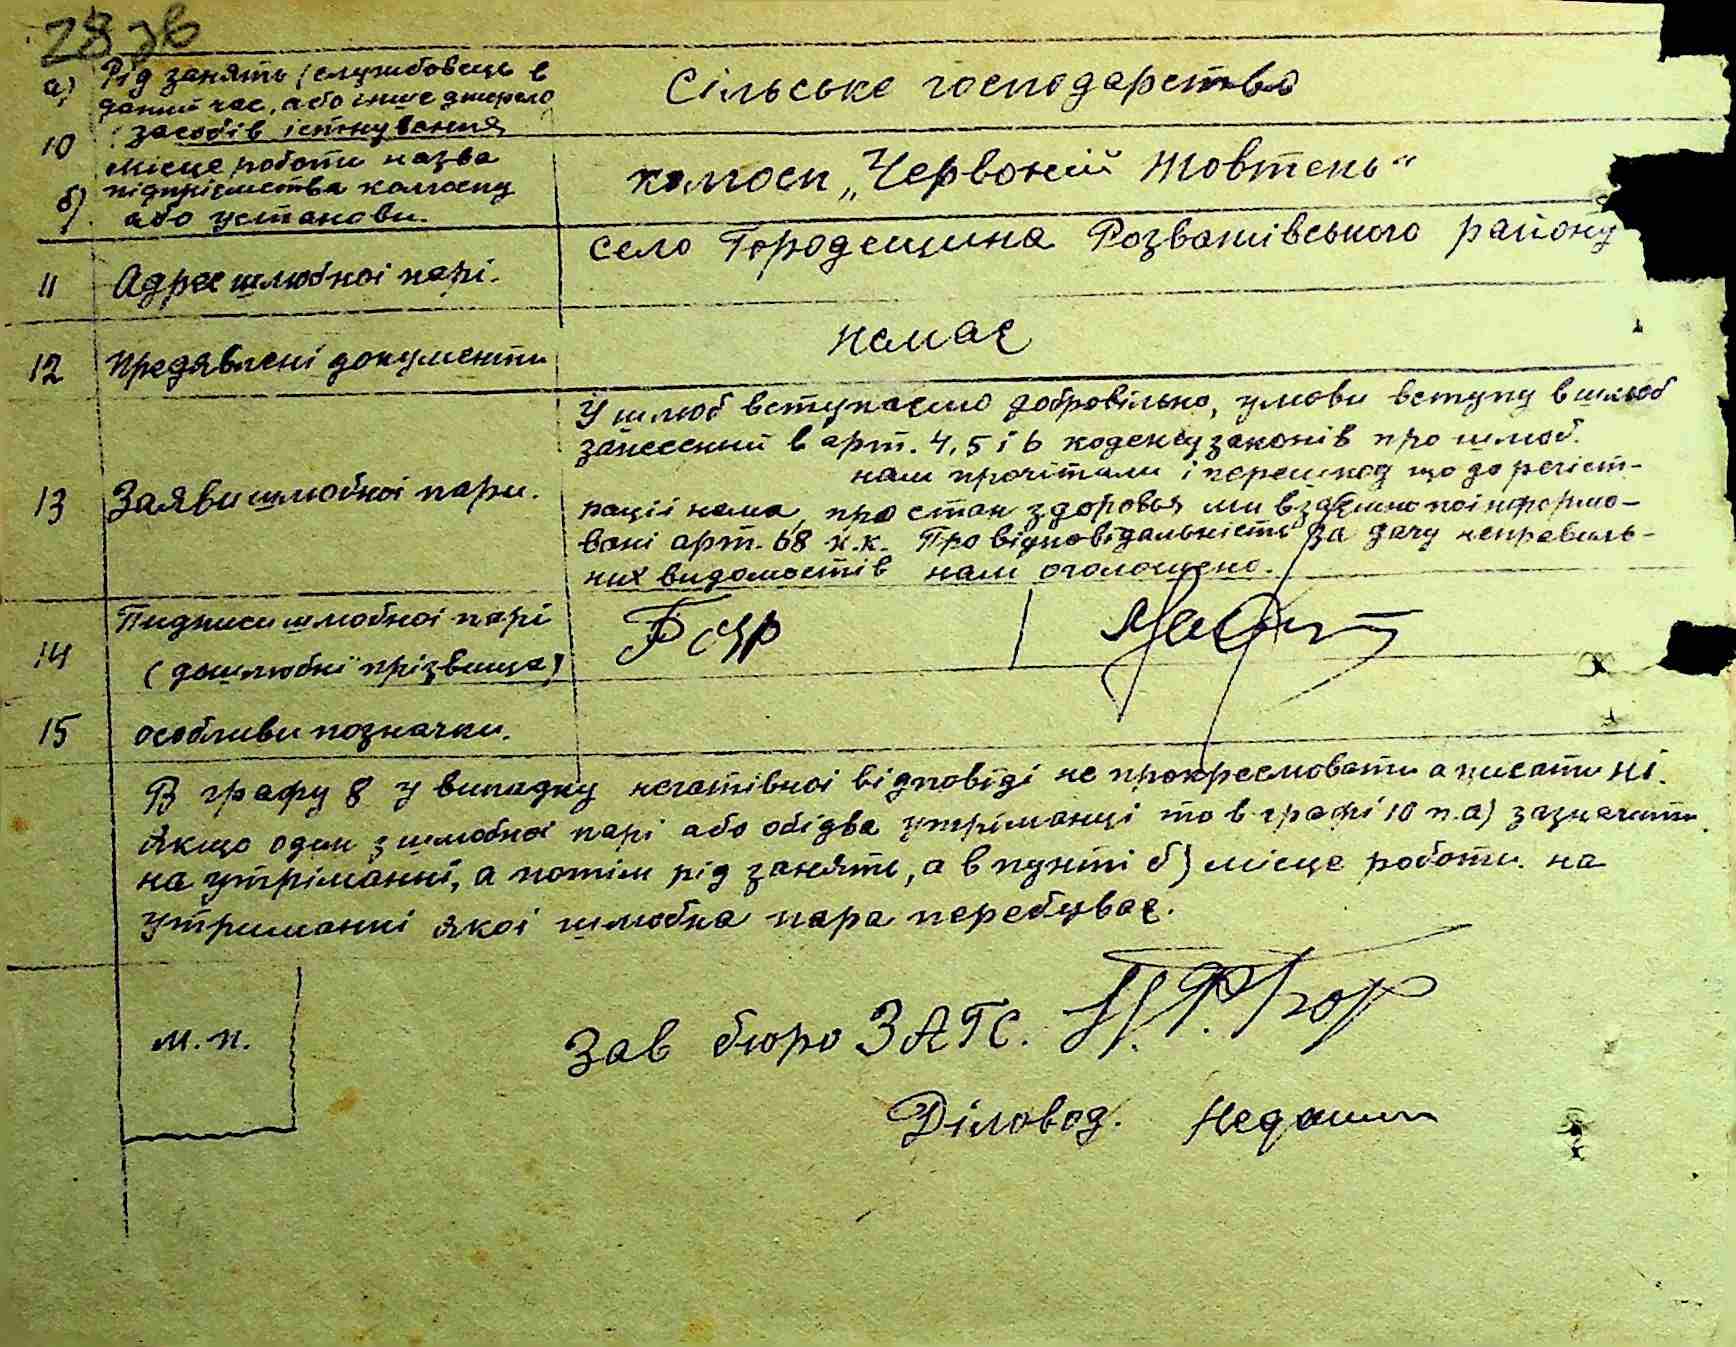 28 зв
а) Рід занять (службовець в
даний час, або інше джерело
10 засобів існування
Місце роботи назва
б) підприємства колгоспу
або установи.
Сільське господарство
колгосп „Червоний Жовтень“
11 Адрес шлюбної парі.
село Городещина Розважівського району
12 Предявлені документи
немає
13 Заяви шлюбної пари.
У шлюб вступаємо добровільно, умови вступу в шлюб
занесений в арт. 4, 5 і 6 кодексу законів про шлюб.
нам прочітали і перешкод що до регіст-
рації нема, про стан здоровья ми взаємно поінформо-
вані арт. 68 к.к. Про відповідальність за дачу неправиль-
них видомостів нам оголошено.
14 Пидписи шлюбної парі
(дошлюбні прізвища)
15 особливи позначки.
В графу 8 у випадку негатівної відповіді не прокреслювати а писати ні.
Якщо один з шлюбної парі або обідва утріманці то в графі 10 п. а) зазначати
на утріманні, а потім рід занять, а в пункті б) місце роботи на
утриманні якої шлюбна пара перебуває.
м. п.
Зав бюро ЗАГС.
Діловод.